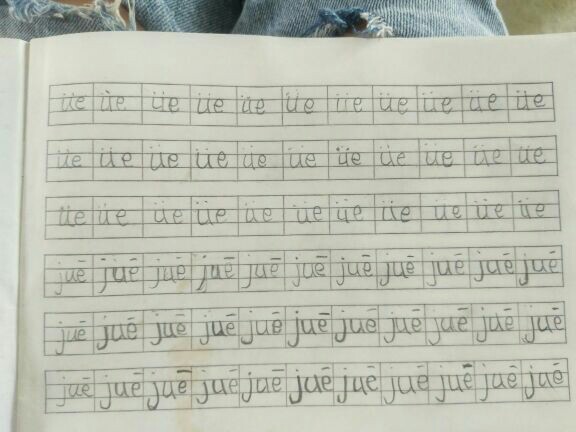 üe üe üe üe üe üe üe üe üe üe üe
üe üe üe üe üe üe üe üe üe üe üe
üe üe üe üe üe üe üe üe üe üe üe
juē juē juē juē juē juē juē juē juē juē juē
juē juē juē juē juē juē juē juē juē juē juē
juē juē juē juē juē juē juē juē juē juē juē